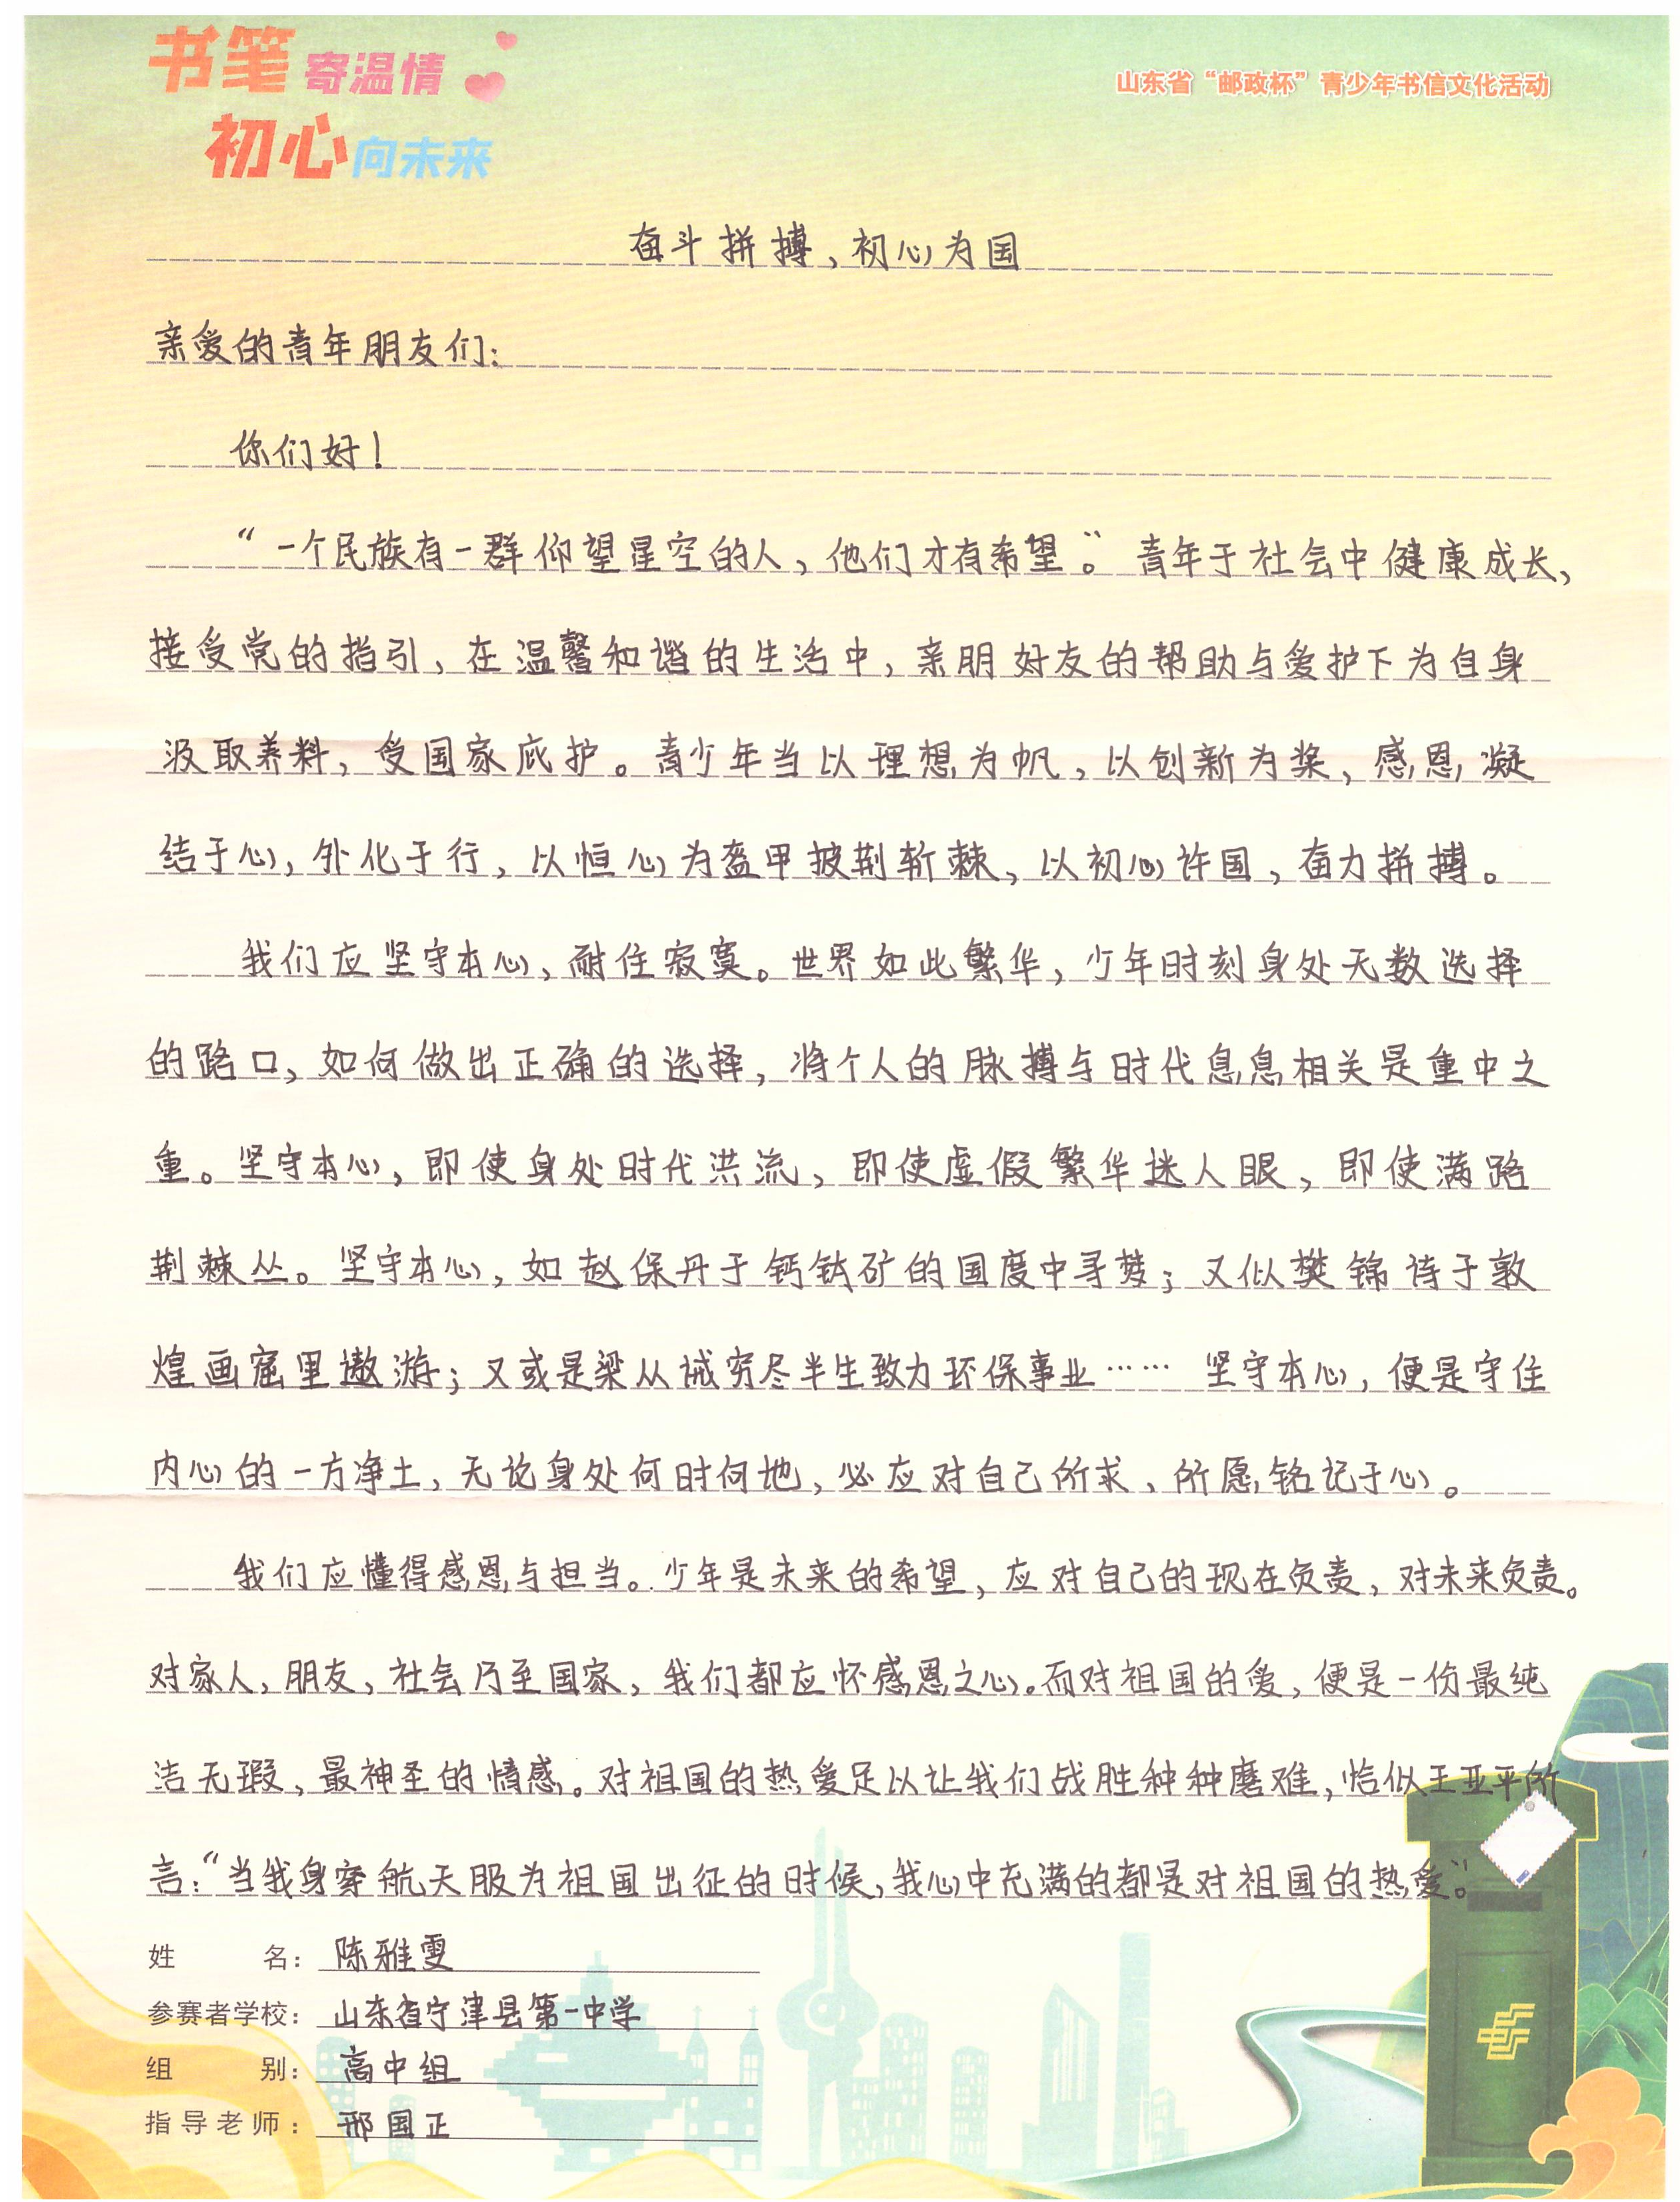 书笔寄温情
初心向未来
山东省“邮政杯”青少年书信文化活动
奋斗拼搏、初心为国
亲爱的青年朋友们：
你们好！
“一个民族有一群仰望星空的人，他们才有希望。”青年于社会中健康成长，
接受党的指引，在温馨和谐的生活中，亲朋好友的帮助与爱护下为自身
汲取养料，受国家庇护。青少年当以理想为帆，以创新为桨，感恩凝
结于心，外化于行，以恒心为盔甲披荆斩棘，以初心许国，奋力拼搏。
我们应坚守本心，耐住寂寞。世界如此繁华，少年时刻身处无数选择
的路口，如何做出正确的选择，将个人的脉搏与时代息息相关是重中之
重。坚守本心，即使身处时代洪流，即使虚假繁华迷人眼，即使满路
荆棘丛。坚守本心，如赵保丹于钙钛矿的国度中寻梦；又似樊锦诗于敦
煌画窟里遨游；又或是梁从诫穷尽半生致力环保事业……坚守本心，便是守住
内心的一方净土，无论身处何时何地，必应对自己所求、所愿铭记于心。
我们应懂得感恩与担当。少年是未来的希望，应对自己的现在负责，对未来负责。
对家人，朋友，社会乃至国家，我们都应怀感恩之心。而对祖国的爱，便是一份最纯
洁无瑕，最神圣的情感。对祖国的热爱足以让我们战胜种种磨难，恰似王亚平所
言：“当我身穿航天服为祖国出征的时候，我心中充满的都是对祖国的热爱。”
姓名：陈雅雯
参赛者学校：山东省宁津县第一中学
组别：高中组
指导老师：邢国正